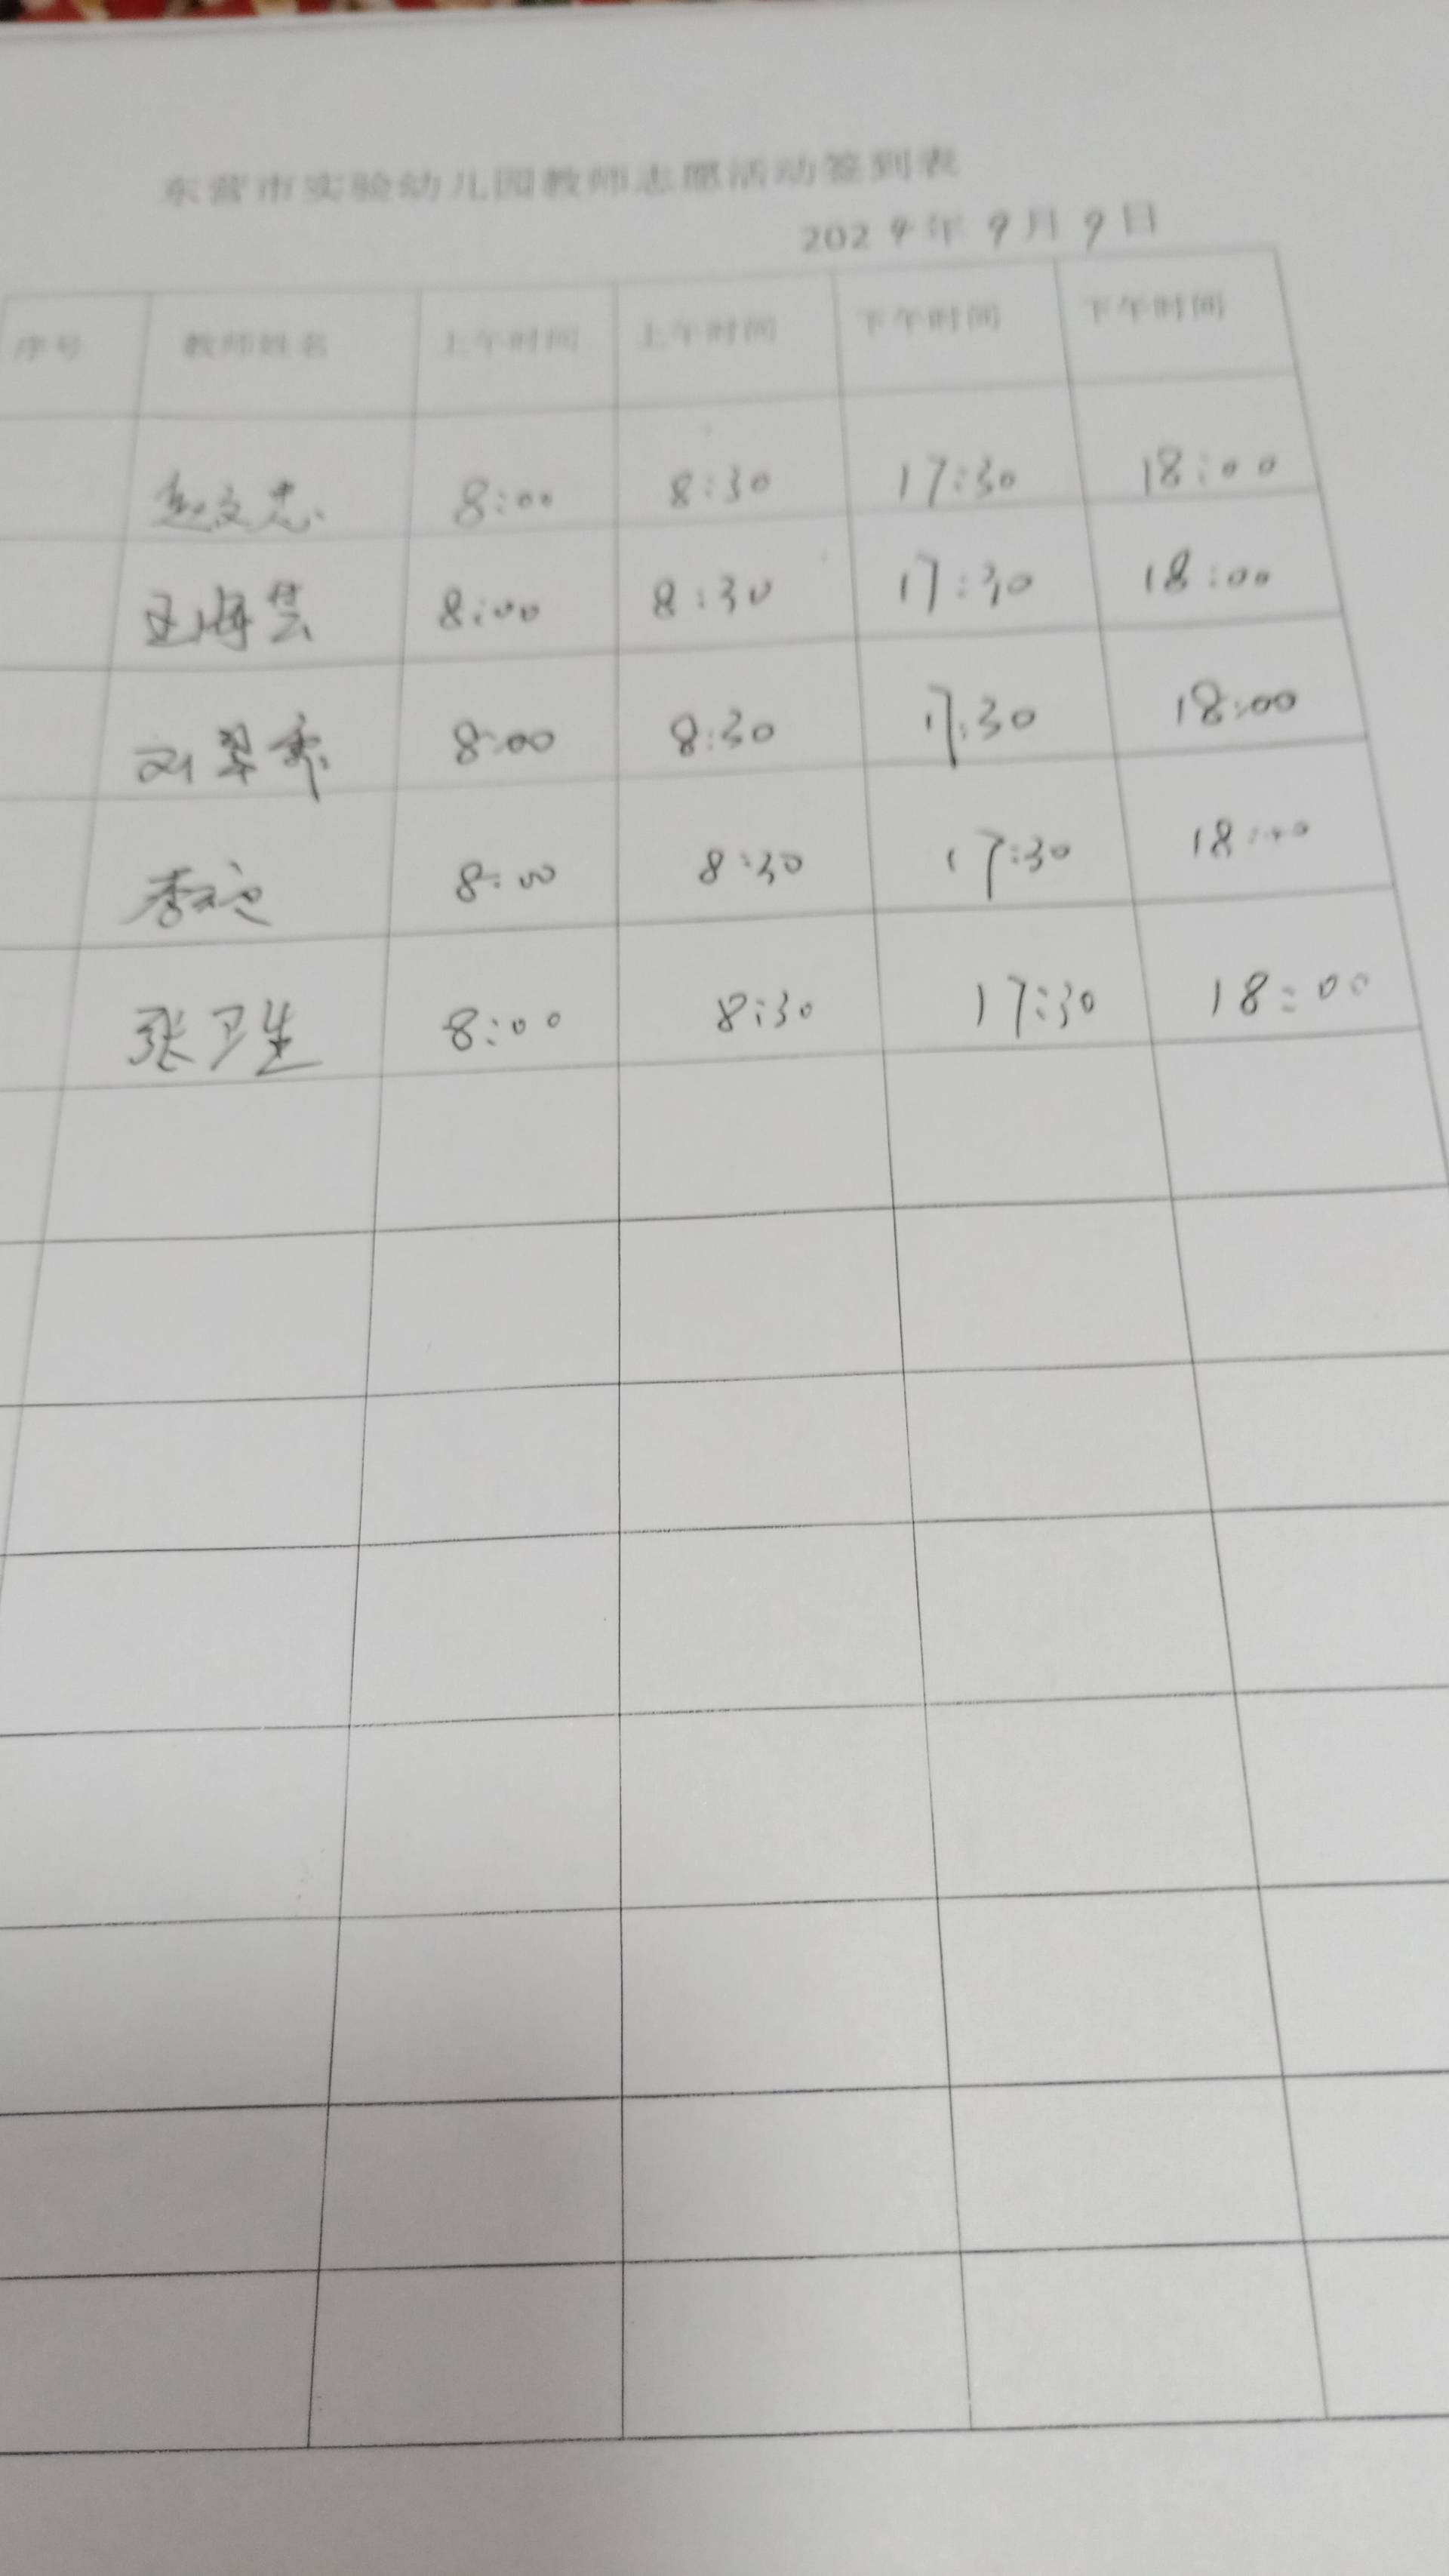 东营市实验幼儿园教师志愿活动签到表
2024年9月9日
序号 教师姓名 上午时间 上午时间 下午时间 下午时间
赵文忠 8:00 8:30 17:30 18:00
8:00 8:30 17:30 18:00
刘翠 8:00 8:30 17:30 18:00
8:00 8:30 17:30 18:00
张卫生 8:00 8:30 17:30 18:00